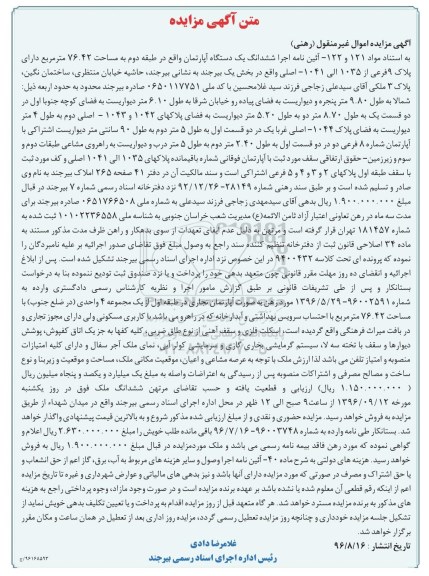 متن آگهی مزایده
آگهی مزایده اموال غیرمنقول (رهنی)
به استناد مواد ۱۲۱ و ۱۲۲- آئین نامه اجرا ششدانگ یک دستگاه آپارتمان واقع در طبقه دوم به مساحت ۷۶.۴۲ مترمربع دارای
پلاک ۹فرعی از ۱۰۳۵ الی ۱۰۴۱- اصلی واقع در بخش یک بیرجند به نشانی بیرجند، حاشیه خیابان منتظری، ساختمان نگین،
پلاک ۳ ملکی آقای سیدعلی زجاجی فرزند سید غلامحسین با کد ملی ۰۶۵۰۱۱۷۷۵۱ صادره بیرجند محدود به حدود اربعه ذیل:
شمالا به طول ۹.۸۰ متر پنجره و دیواریست به فضای پیاده رو خیابان شرقا به طول ۶.۱۰ متر دیواریست به فضای کوچه جنوبا اول در
دو قسمت یک به طول ۸.۷۰ متر دو به طول ۵.۲۰ متر دیواریست به فضای پلاکهای ۱۰۴۲ و ۱۰۴۳ - اصلی دوم به طول ۴ متر
دیواریست به فضای پلاک ۱۰۴۴- اصلی غربا یک در دو قسمت اول به طول ۵ متر دوم به طول ۹۰ سانتی متر دیواریست اشتراکی با
آپارتمان شماره ۸ فرعی دو در دو قسمت اول به طول ۲.۴۰ متر دوم به طول ۵ متر درب و دیواریست به راهروی مشاعی طبقات دوم و
سوم و زیرزمین- حقوق ارتفاقی سقف مورد ثبت با آپارتمان فوقانی شماره باقیمانده پلاکهای ۱۰۳۵ الی ۱۰۴۱ اصلی و کف مورد ثبت
با سقف طبقه اول پلاکهای ۲ و ۳ و ۴ و ۵ فرعی اشتراکی است و سند مالکیت آن در دفتر ۴۱ صفحه ۲۶۵ املاک بیرجند به نام وی
صادر و تسلیم شده است و بر طبق سند رهنی شماره ۲۸۱۴۹-۹۲/۱۲/۲۶ نزد دفترخانه اسناد رسمی شماره ۷ بیرجند در قبال
مبلغ ۱.۹۰۰.۰۰۰.۰۰۰ ریال بدهی آقای سیدمهدی زجاجی فرزند سیدعلی به شماره ملی ۰۶۵۱۷۶۶۵۰۸ صادره بیرجند برای
مدت سه ماه در رهن تعاونی اعتبار آزاد ثامن الائمه(ع) مدیریت شعب خراسان جنوبی به شناسه ملی ۱۰۱۰۲۲۳۶۵۵۸ ثبت شده به
شماره ۱۸۱۴۵۷ تهران قرار گرفته است و مرتهن به دلیل عدم ایفای تعهدات از سوی بدهکار و راهن ظرف مدت مذکور مستند به
ماده ۳۴ اصلاحی قانون ثبت از دفترخانه تنظیم کننده سند راجع به وصول مبلغ فوق تقاضای صدور اجرائیه بر علیه نامبردگان را
نموده که پرونده ای تحت کلاسه ۹۴۰۰۴۳۲ در این خصوص نزد اداره اجرای اسناد رسمی بیرجند تشکیل شده است. پس از ابلاغ
اجرائیه و انقضای ده روز مهلت مقرر قانونی چون متعهد بدهی خود را پرداخت و یا نزد صندوق ثبت تودیع ننموده بنا به درخواست
بستانکار و پس از طی تشریفات قانونی بر طبق گزارش مامور اجرا و نظریه کارشناس رسمی دادگستری وارده به
شماره ۹۶۰۰۲۵۹۱-۱۳۹۶/۵/۲۹ مورد رهن به صورت آپارتمان تجاری در طبقه اول از یک مجموعه ۴ واحدی (در ضلع جنوب) با
مساحت ۷۶.۴۲ مترمربع با احتساب سرویس بهداشتی و آبدارخانه که در راهرو می باشد با کاربری مسکونی ولی دارای مجوز تجاری و
در بافت میراث فرهنگی واقع گردیده است، اسکلت فلزی و سقف آهنی از نوع طاق ضربی، کلیه کفها به جز یک اتاق کفپوش، پوشش
دیوارها و سقف با تخته سه لا، سیستم گرمایشی بخاری گازی و سرمایشی کولر آبی، نمای ملک آجر سفال و دارای کلیه امتیازات
منصوبه و امتیاز تلفن می باشد لذا ارزش ملک با توجه به عرصه مشاعی و اعیان، موقعیت مکانی ملک، مساحت و موقعیت و زیربنا و نوع
ساخت و مصالح مصرفی و اشتراکات منصوبه پس از رسیدگی به اعتراضات واصله به مبلغ یک میلیارد و یکصد و پنجاه میلیون ریال
( ۱.۱۵۰.۰۰۰.۰۰۰ ریال) ارزیابی و قطعیت یافته و حسب تقاضای مرتهن ششدانگ ملک فوق در روز یکشنبه
مورخه ۱۳۹۶/۰۹/۱۲ از ساعت۹ صبح الی ۱۲ ظهر در محل اداره اجرای اسناد رسمی بیرجند واقع در میدان شهداء از طریق
مزایده به فروش خواهد رسید. مزایده حضوری و نقدی و از مبلغ ارزیابی شده مذکور شروع و به بالاترین قیمت پیشنهادی واگذار خواهد
شد. بستانکار طی نامه وارده به شماره ۹۶۰۰۳۷۴۸-۹۶/۷/۱۶ باقی مانده طلب خویش را مبلغ ۲.۶۳۰.۰۰۰.۰۰۰ ریال اعلام و
گواهی نموده که مورد رهن فاقد بیمه نامه رسمی می باشد و ملک موردمزایده در قبال مبلغ ۱.۹۰۰.۰۰۰.۰۰۰ ریال به فروش
خواهد رسید. هزینه های دولتی به شرح ماده ۴۰- آئین نامه اجرا وصول و سایر هزینه های مربوط به آب، برق، گاز اعم از حق انشعاب و
یا حق اشتراک و مصرف در صورتی که مورد مزایده دارای آنها باشد و نیز بدهی های مالیاتی و عوارض شهرداری و غیره تا تاریخ مزایده
اعم از اینکه رقم قطعی آن معلوم شده یا نشده باشد بر عهده برنده مزایده است و در صورت وجود مازاد، وجوه پرداختی راجع به هزینه
های مذکور به برنده مزایده مسترد خواهد شد. هر گاه متعهد قبل از روز مزایده اقدام به پرداخت و یا تعیین تکلیف بدهی خویش نماید از
تشکیل جلسه مزایده خودداری و چنانچه روز مزایده تعطیل رسمی گردد، مزایده روز اداری بعد از تعطیل در همان ساعت و مکان مقرر
برگزار خواهد شد.
تاریخ انتشار : ۹۶/۸/۱۶
غلامرضا دادی
رئیس اداره اجرای اسناد رسمی بیرجند